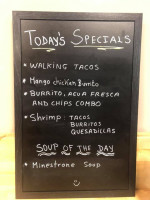 TODAY'S SPECIALS
• WALKING TACOS
• Mango chicken Burrito
• BURRITO, AGUA FRESCA
AND CHIPS COMBO
• Shrimp: TACOS
BURRITOS
QUESADILLAS
SOUP OF THE DAY
• Minestrone Soup